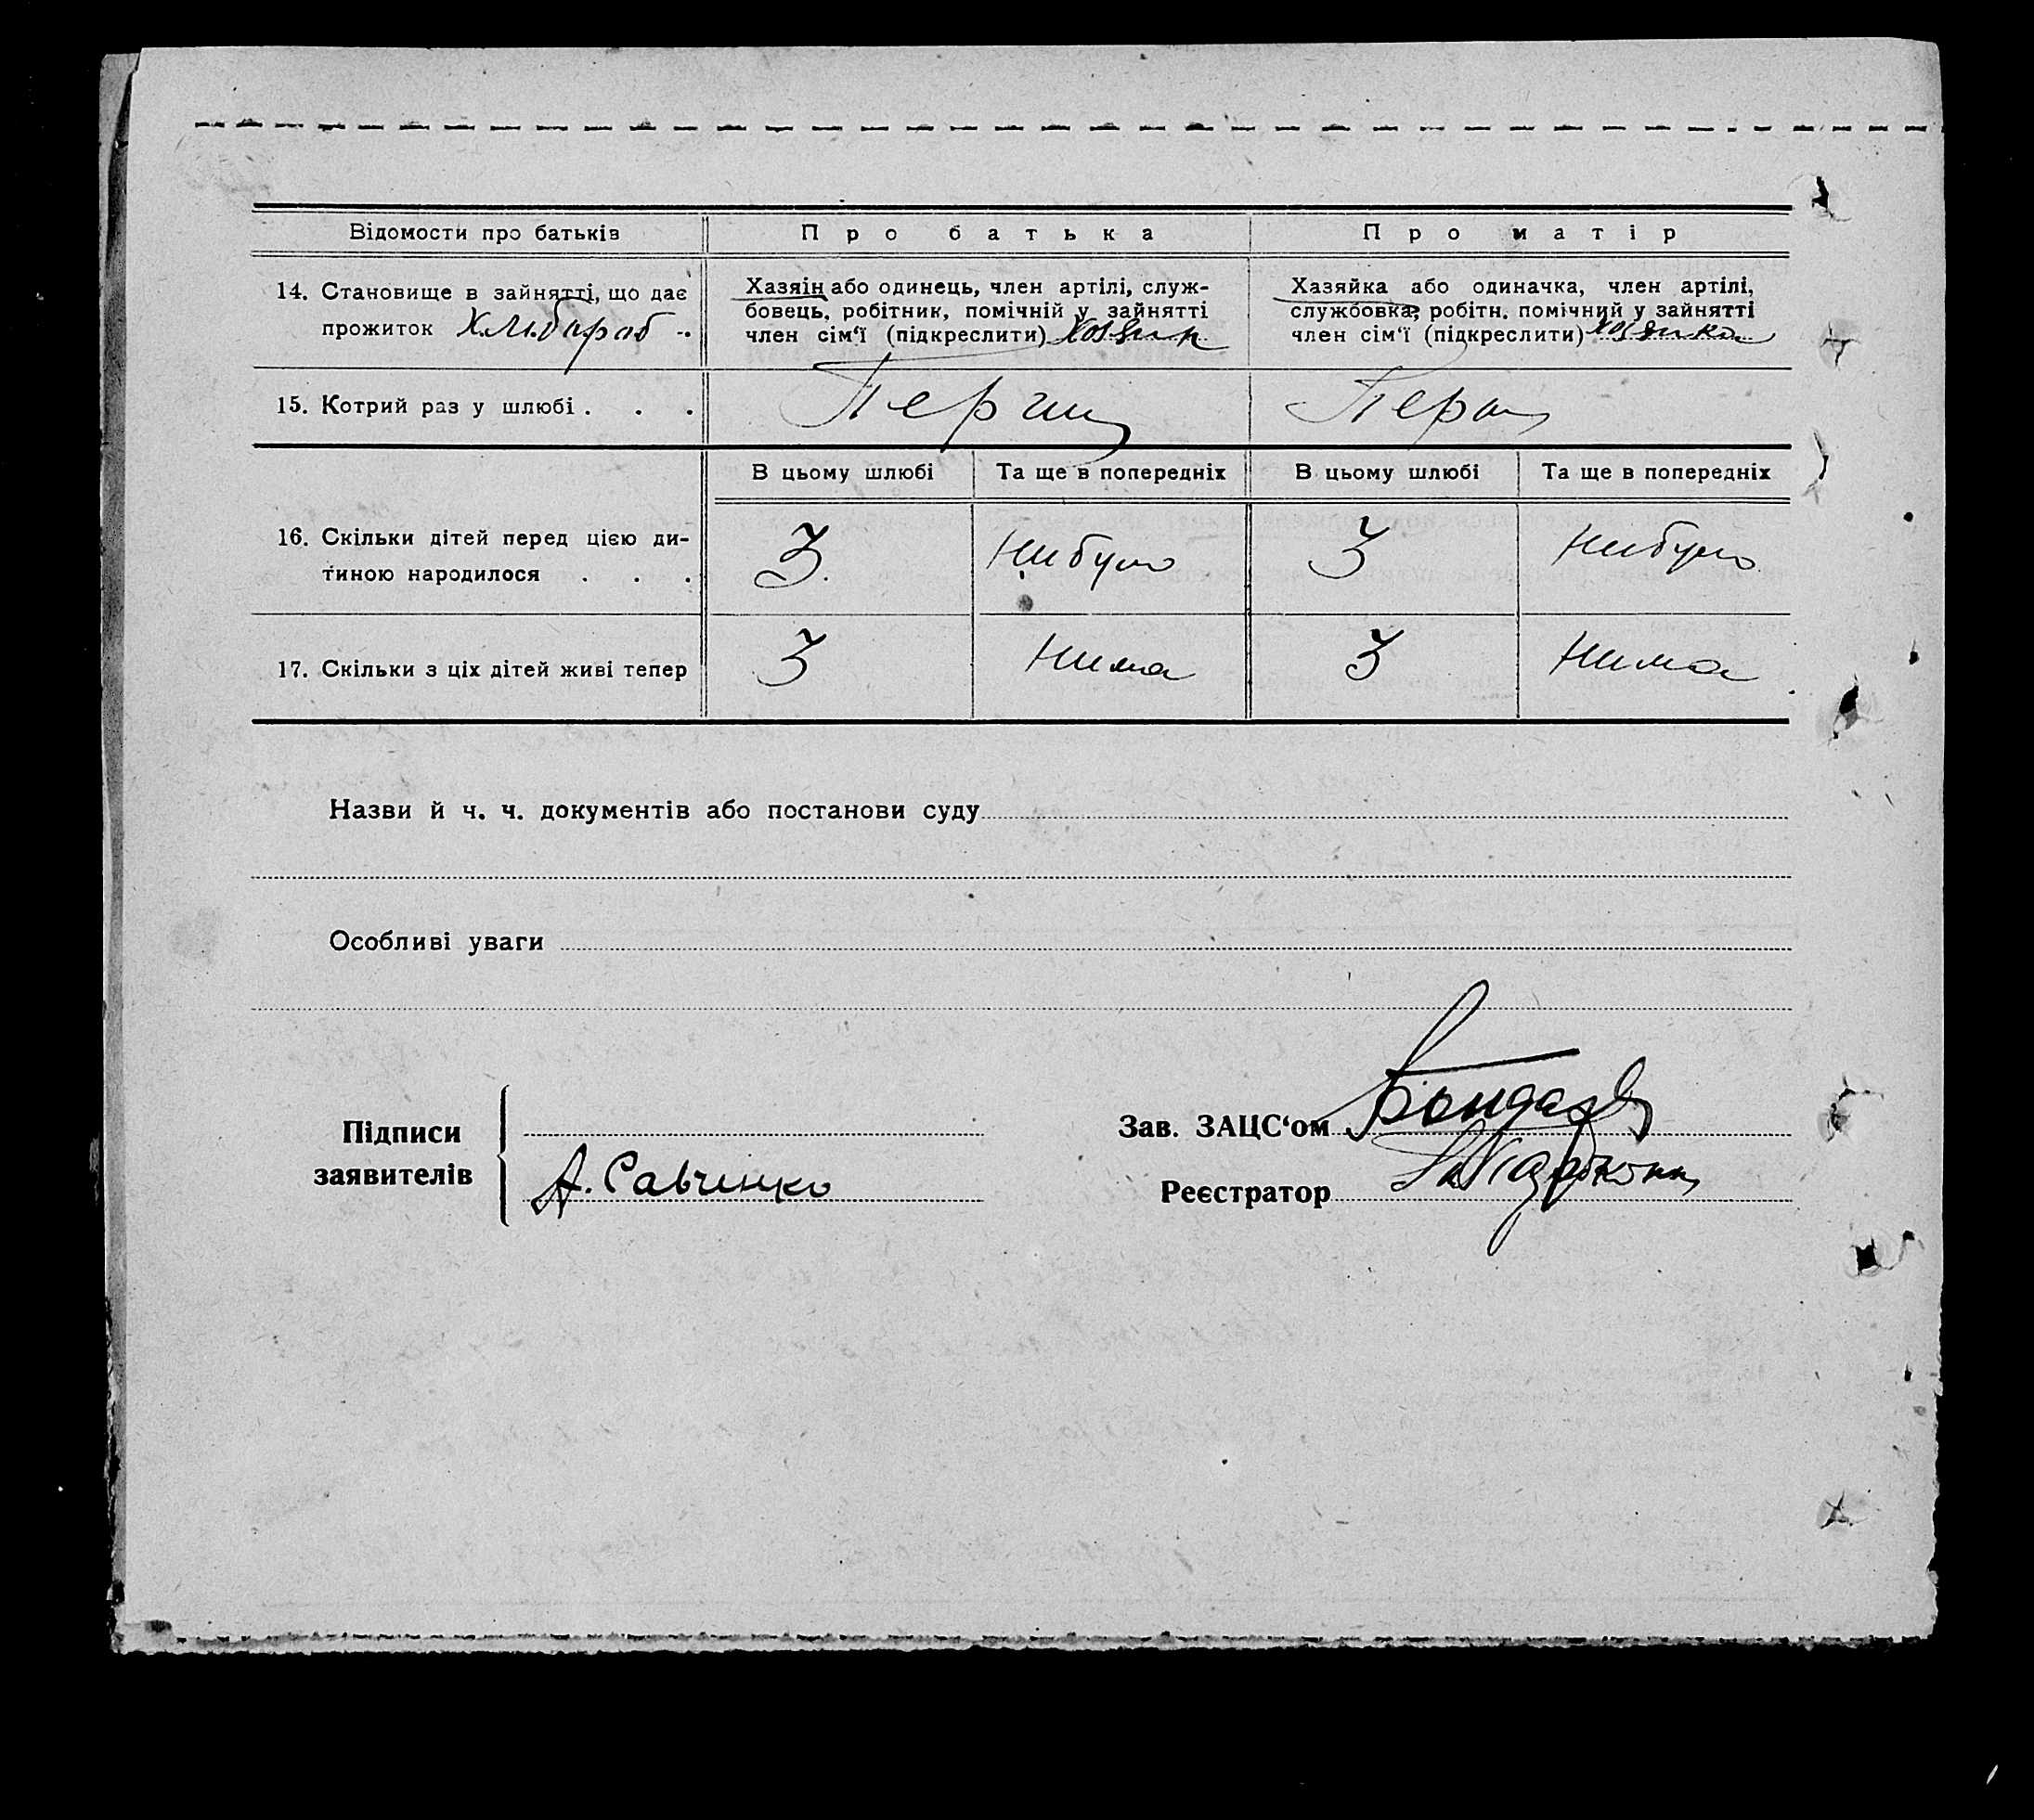 Відомости про батьків
Про батька
Про матір
14. Становище в зайнятті, що дає
прожиток Хлібараб
Хазяін або одинець, член артілі, служ-
бовець, робітник, помічній у зайнятті
член сім'ї (підкреслити) Хозяин
Хазяйка або одиначка, член артілі,
службовка, робітн. помічний у зайнятті
член сім'ї (підкреслити) хозяйка
15. Котрий раз у шлюбі . . .
Перши
Перш
В цьому шлюбі
Та ще в попередніх
В цьому шлюбі
Та ще в попередніх
16. Скільки дітей перед цією ди-
тиною народилося . . .
3.
Нибуло
3
Нибуло
17. Скільки з ціх дітей живі тепер
3
Нима
3
Нима
Назви й ч. ч. документів або постанови суду
Особливі уваги
Підписи
заявителів
А. Савченко
Зав. ЗАЦС'ом
Реєстратор